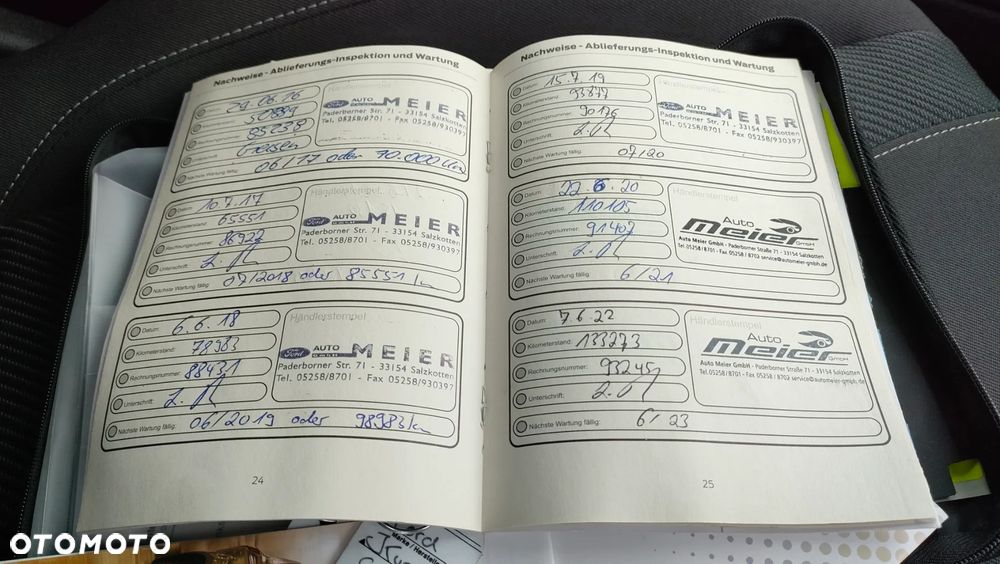 Nachweise - Ablieferungs-Inspektion und Wartung
Datum: 29.06.16
Kilometerstand:
Rechnungsnummer: 85258
Unterschrift:
Nächste Wartung fällig: 06/17 oder 70.000 km
Händlerstempel
Ford AUTO MEIER
Paderborner Str. 71 - 33154 Salzkotten
Tel. 05258/8701 - Fax 05258/930397
Datum: 10.7.17
Kilometerstand: 65551
Rechnungsnummer: 86927
Unterschrift:
Nächste Wartung fällig: 07/2018 oder 85551 km
Händlerstempel
Ford AUTO MEIER
Paderborner Str. 71 - 33154 Salzkotten
Tel. 05258/8701 - Fax 05258/930397
Datum: 6.6.18
Kilometerstand: 78983
Rechnungsnummer: 88431
Unterschrift:
Nächste Wartung fällig: 06/2019 oder 98983 km
Händlerstempel
Ford AUTO MEIER
Paderborner Str. 71 - 33154 Salzkotten
Tel. 05258/8701 - Fax 05258/930397
24
Nachweise - Ablieferungs-Inspektion und Wartung
Datum: 15.7.19
Kilometerstand: 93877
Rechnungsnummer: 90176
Unterschrift:
Nächste Wartung fällig: 07/20
Händlerstempel
Ford AUTO MEIER
Paderborner Str. 71 - 33154 Salzkotten
Tel. 05258/8701 - Fax 05258/930397
Datum: 22.6.20
Kilometerstand: 110105
Rechnungsnummer: 91407
Unterschrift:
Nächste Wartung fällig: 6/21
Händlerstempel
Auto Meier GmbH
Auto Meier GmbH - Paderborner Straße 71 - 33154 Salzkotten
Tel. 05258 / 8701 - Fax 05258 / 8702 service@automeier-gmbh.de
Datum: 7.6.22
Kilometerstand: 133273
Rechnungsnummer: 93245
Unterschrift:
Nächste Wartung fällig: 6/23
Händlerstempel
Auto Meier GmbH
Auto Meier GmbH - Paderborner Straße 71 - 33154 Salzkotten
Tel. 05258 / 8701 - Fax 05258 / 8702 service@automeier-gmbh.de
25
Marke / Herstelle
OTOMOTO